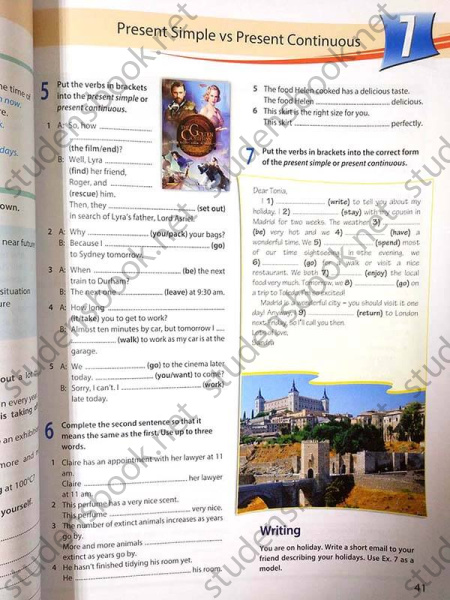 Present Simple vs Present Continuous
7
5 Put the verbs in brackets
into the present simple or
present continuous.
1 A: So, how
(the film/end)?
B: Well, Lyra
(find) her friend,
Roger, and
(rescue) him.
Then, they (set out)
in search of Lyra's father, Lord Asriel.
2 A: Why (you/pack) your bags?
B: Because I (go)
to Sydney tomorrow.
3 A: When (be) the next
train to Durham?
B: The next one (leave) at 9:30 am.
4 A: How long
(it/take) you to get to work?
B: Almost ten minutes by car, but tomorrow I
(walk) to work as my car is at the
garage.
5 A: We (go) to the cinema later
today. (you/want) to come?
B: Sorry, I can't. I (work)
late today.
6 Complete the second sentence so that it
means the same as the first. Use up to three
words.
1 Claire has an appointment with her lawyer at 11
am.
Claire her lawyer
at 11 am.
2 This perfume has a very nice scent.
This perfume very nice.
3 The number of extinct animals increases as years
go by.
More and more animals
extinct as years go by.
4 He hasn't finished tidying his room yet.
He his room.
5 The food Helen cooked has a delicious taste.
The food Helen delicious.
6 This skirt is the right size for you.
This skirt perfectly.
7 Put the verbs in brackets into the correct form
of the present simple or present continuous.
Dear Tonia,
I 1) (write) to tell you about my
holiday. I 2) (stay) with my cousin in
Madrid for two weeks. The weather 3)
(be) very hot and we 4) (have) a
wonderful time. We 5) (spend) most
of our time sightseeing. In the evening, we
6) (go) for a walk or visit a nice
restaurant. We both 7) (enjoy) the local
food very much. Tomorrow, we 8) (go) on
a trip to Toledo. I'm so excited!
Madrid is a wonderful city – you should visit it one
day! Anyway, I 9) (return) to London
next Friday, so I'll call you then.
Lots of love,
Sandra
Writing
You are on holiday. Write a short email to your
friend describing your holidays. Use Ex. 7 as a
model.
41
he time of
now.
re.
k.
days.
own.
near future
situation
ure
out a lot
n every year
is taking
an exhibition
more and m
g at 100°C!
yourself.
studentsbook.net